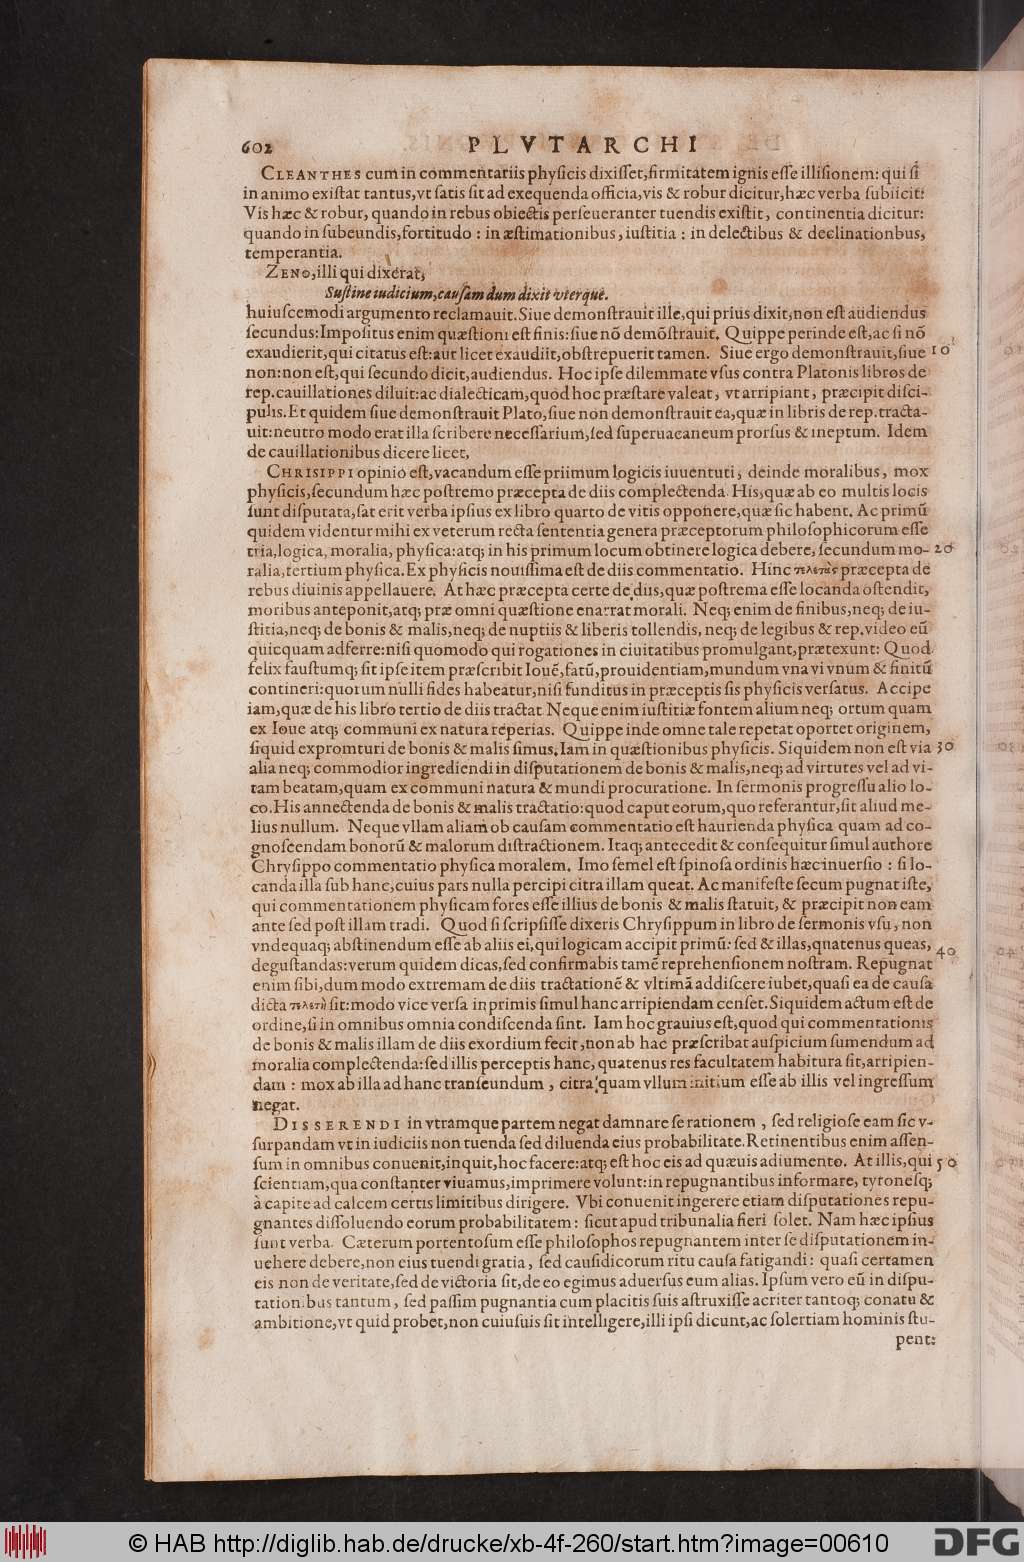 602 PLVTARCHI
CLEANTHES cum in commentariis physicis dixisset, firmitatem ignis esse illisionem: qui si
in animo existat tantus, vt satis sit ad exequenda officia, vis & robur dicitur, hæc verba subiicit:
Vis hæc & robur, quando in rebus obiectis perseueranter tuendis existit, continentia dicitur:
quando in subeundis, fortitudo : in æstimationibus, iustitia : in delectibus & declinationbus,
temperantia.
ZENO, illi qui dixerat,
Sustine iudicium, causam dum dixit vterque.
huiuscemodi argumento reclamauit. Siue demonstrauit ille, qui prius dixit, non est audiendus
secundus: Impositus enim quæstioni est finis: siue nõ demõstrauit. Quippe perinde est, ac si nõ
exaudierit, qui citatus est: aut licet exaudiit, obstrepuerit tamen. Siue ergo demonstrauit, siue 10
non: non est, qui secundo dicit, audiendus. Hoc ipse dilemmate vsus contra Platonis libros de
rep. cauillationes diluit: ac dialecticam, quod hoc præstare valeat, vt arripiant, præcipit disci-
pulis. Et quidem siue demonstrauit Plato, siue non demonstrauit ea, quæ in libris de rep. tracta-
uit: neutro modo erat illa scribere necessarium, sed superuacaneum prorsus & ineptum. Idem
de cauillationibus dicere licet,
CHRISIPPI opinio est, vacandum esse priimum logicis iuuentuti, deinde moralibus, mox
physicis, secundum hæc postremo præcepta de diis complectenda. His, quæ ab eo multis locis
sunt disputata, sat erit verba ipsius ex libro quarto de vitis opponere, quæ sic habent. Ac primũ
quidem videntur mihi ex veterum recta sententia genera præceptorum philosophicorum esse
tria, logica, moralia, physica: atq; in his primum locum obtinere logica debere, secundum mo- 20
ralia, tertium physica. Ex physicis nouissima est de diis commentatio. Hinc τελετὰς præcepta de
rebus diuinis appellauere. At hæc præcepta certe de diis, quæ postrema esse locanda ostendit,
moribus anteponit, atq; præ omni quæstione enarrat morali. Neq; enim de finibus, neq; de iu-
stitia, neq; de bonis & malis, neq; de nuptiis & liberis tollendis, neq; de legibus & rep. video eũ
quicquam adferre: nisi quomodo qui rogationes in ciuitatibus promulgant, prætexunt: Quod
felix faustumq; sit ipse item præscribit Iouẽ, fatũ, prouidentiam, mundum vna vi vnum & finitũ
contineri: quorum nulli fides habeatur, nisi funditus in præceptis sis physicis versatus. Accipe
iam, quæ de his libro tertio de diis tractat Neque enim iustitiæ fontem alium neq; ortum quam
ex Ioue atq; communi ex natura reperias. Quippe inde omne tale repetat oportet originem,
siquid expromturi de bonis & malis simus. Iam in quæstionibus physicis. Siquidem non est via 30
alia neq; commodior ingrediendi in disputationem de bonis & malis, neq; ad virtutes vel ad vi-
tam beatam, quam ex communi natura & mundi procuratione. In sermonis progressu alio lo-
co. His annectenda de bonis & malis tractatio: quod caput eorum, quo referantur, sit aliud me-
lius nullum. Neque vllam aliam ob causam commentatio est haurienda physica quam ad co-
gnoscendam bonorũ & malorum distractionem. Itaq; antecedit & consequitur simul authore
Chrysippo commentatio physica moralem. Imo semel est spinosa ordinis hæc inuersio : si lo-
canda illa sub hanc, cuius pars nulla percipi citra illam queat. Ac manifeste secum pugnat iste,
qui commentationem physicam fores esse illius de bonis & malis statuit, & præcipit non eam
ante sed post illam tradi. Quod si scripsisse dixeris Chrysippum in libro de sermonis vsu, non
vndequaq; abstinendum esse ab aliis ei, qui logicam accipit primũ: sed & illas, quatenus queas, 40
degustandas: verum quidem dicas, sed confirmabis tamẽ reprehensionem nostram. Repugnat
enim sibi, dum modo extremam de diis tractationẽ & vltimã addiscere iubet, quasi ea de causa
dicta τελετὴ sit: modo vice versa in primis simul hanc arripiendam censet. Siquidem actum est de
ordine, si in omnibus omnia condiscenda sint. Iam hoc grauius est, quod qui commentationis
de bonis & malis illam de diis exordium fecit, non ab hac præscribat auspicium sumendum ad
moralia complectenda: sed illis perceptis hanc, quatenus res facultatem habitura sit, arripien-
dam : mox ab illa ad hanc transeundum, citra quam vllum initium esse ab illis vel ingressum
negat.
DISSERENDI in vtramque partem negat damnare se rationem, sed religiose eam sic v-
surpandam vt in iudiciis non tuenda sed diluenda eius probabilitate. Retinentibus enim assen-
sum in omnibus conuenit, inquit, hoc facere: atq; est hoc eis ad quæuis adiumento. At illis, qui 50
scientiam, qua constanter viuamus, imprimere volunt: in repugnantibus informare, tyronesq;
à capite ad calcem certis limitibus dirigere. Vbi conuenit ingerere etiam disputationes repu-
gnantes dissoluendo eorum probabilitatem: sicut apud tribunalia fieri solet. Nam hæc ipsius
sunt verba. Cæterum portentosum esse philosophos repugnantem inter se disputationem in-
uehere debere, non eius tuendi gratia, sed causidicorum ritu causa fatigandi: quasi certamen
eis non de veritate, sed de victoria sit, de eo egimus aduersus eum alias. Ipsum vero eũ in dispu-
tationibus tantum, sed passim pugnantia cum placitis suis astruxisse acriter tantoq; conatu &
ambitione, vt quid probet, non cuiusuis sit intelligere, illi ipsi dicunt, ac solertiam hominis stu-
pent:
© HAB http://diglib.hab.de/drucke/xb-4f-260/start.htm?image=00610
DFG